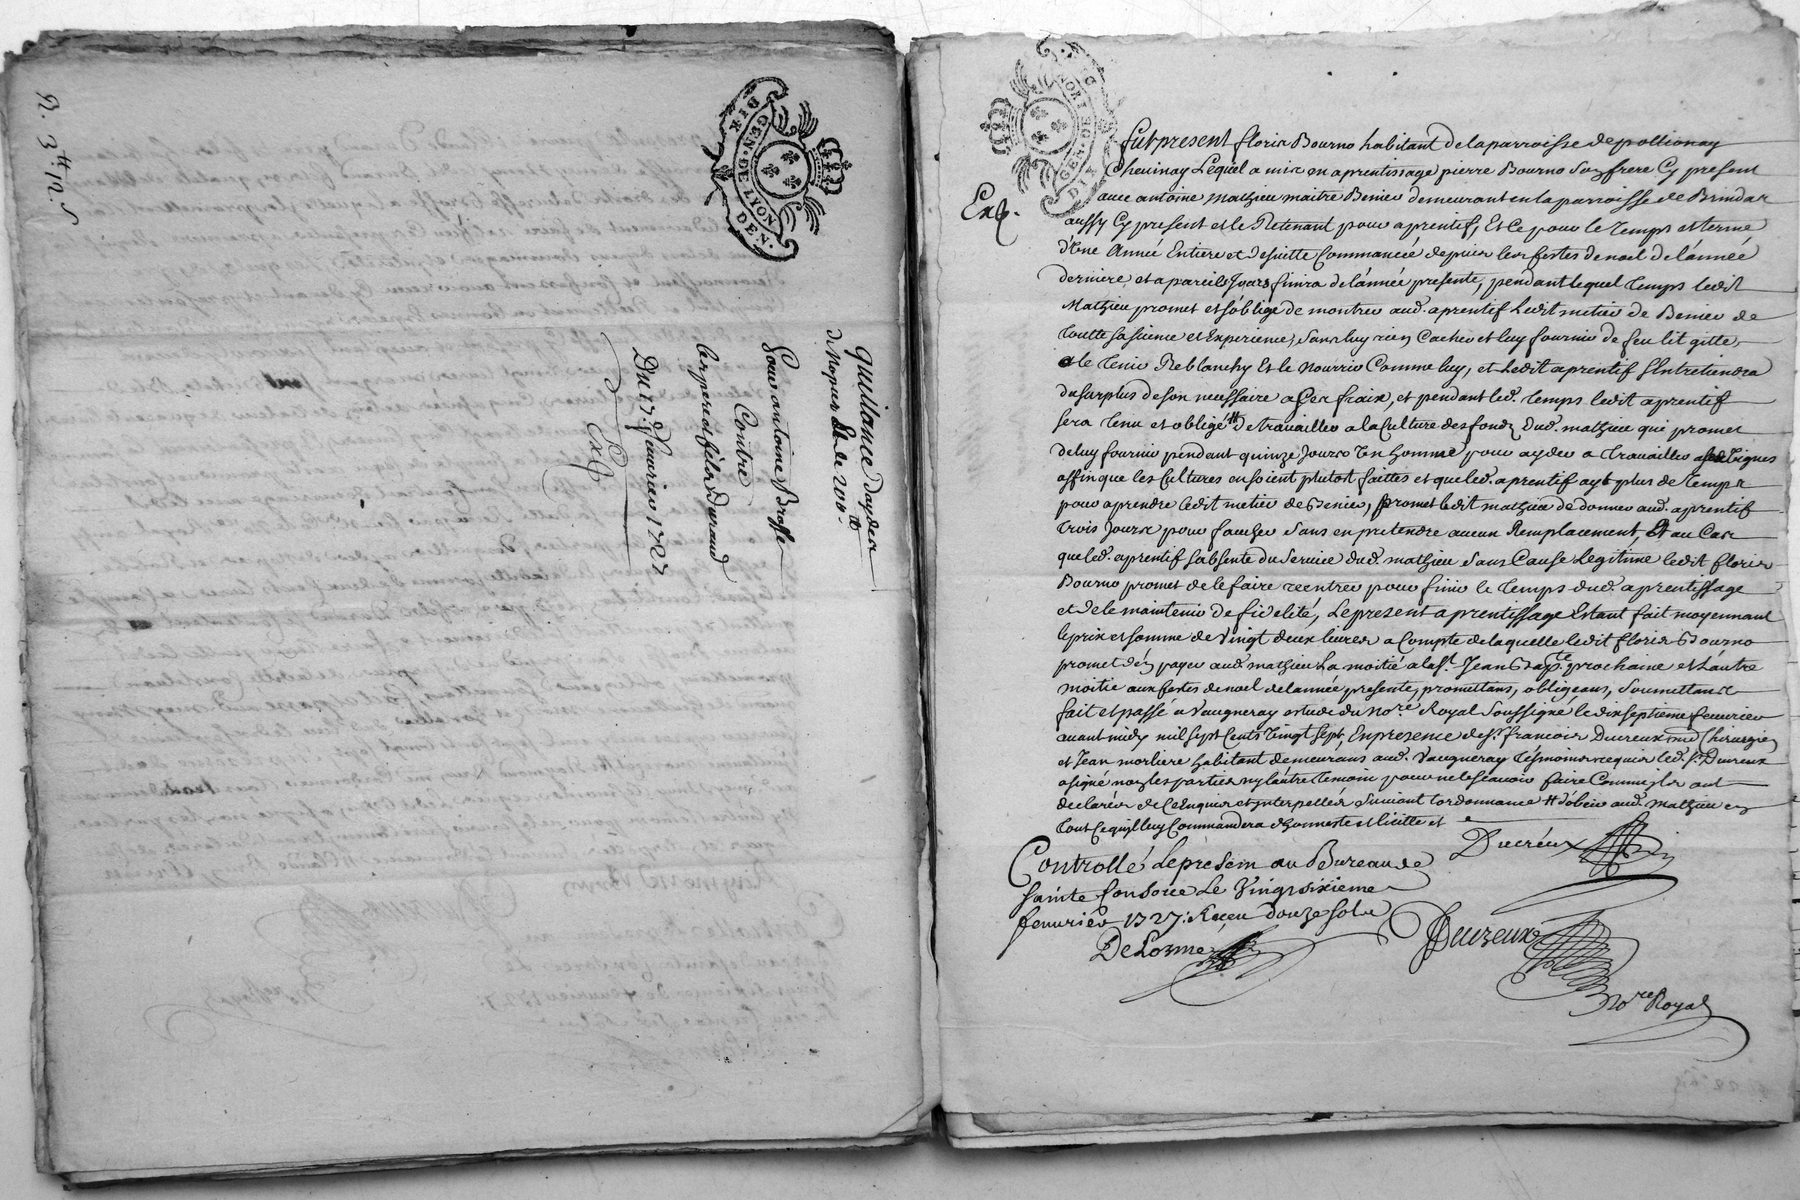 R. 3tt 12. s
GEN. DE LYON
DEN.
DIX
quittance daydes
de Nopces de 20tt.
Pour antoine Brosse
Contre
Les pere et fils Durand
Du 17. feuvrier 1727
Exp
GEN. DE
DIX
Exp.
fut present floris Bourno habitant de la parroisse de pollionay
Cheuinay Lequel a mis en aprentissage pierre Bourno Son frere Cy present
auec antoine mathieu maitre Benier demeurant en la parroisse de Brindas
aussy Cy present et le Retenant pour aprentif, Et Ce pour le temps et terme
d'Vne Année Entiere et de suitte Commancée depuis les festes de noel de l'année
derniere et a pareils Jours finira de l'année presente, pendant lequel temps ledit
Mathieu promet et s'oblige de montrer aud. aprentif Ledit metier de Benier de
toutte sa sience et Experience, sans luy rien Cacher et luy fournir de feu lit gitte,
et le tenir Reblanchy Et le nourrir Comme luy, et Ledit aprentif s'Entretiendra
du surplus de son necessaire a Ses fraix, et pendant led. temps ledit aprentif
sera tenu et obligé tt de trauailler a la Culture des fonds Dud. mathieu qui promet
de luy fournir pendant quinze Jours Vn homme pour ayder a trauailler Vignes
affin que les Cultures en soient plutost faittes et que led. aprentif ayt plus de temps
pour aprendre ledit metier de Benier, promet ledit mathieu de donner aud. aprentif
trois Jours pour faucher Sans en pretendre aucun Remplacement, Et au Cas
que led. aprentif s'absente du Seruice dud. mathieu Sans Cause Legitime ledit floris
Bourno promet de le faire rentrer pour finir le temps dud. aprentissage
et de le maintenir de fidelité, Le present aprentissage Estant fait moyennant
le prix et somme de Vingt deux liures a Compte de laquelle ledit floris Bourno
promet d'en payer aud. mathieu La moitié a la St. Jean Bapte. prochaine et L'autre
moitie aux festes de noel de l'année presente, promettans, obligeans, Soumettans
fait et passé a Vaugneray estude du nore. Royal Soussigné le dix septieme feuurier
auant midy mil sept Cents Vingt Sept, En presence de sr. francois Ducreux me Chirurgien
et Jean morliere habitant demeurans aud. Vaugneray tesmoins requis led. sr. Ducreux
a signé non les parties ny l'autre temoin pour ne le scauoir faire Comme ils ont
declarés de Ce Enquis et interpellés Suiuant l'ordonnance tt d'obeir aud. mathieu en
tout Ce qu'il luy Commandera d'honneste et licitte et
Ducreux
Controllé le present au Bureau de
sainte Consorce Le Vingt sixieme
feuurier 1727. Receu douze sols
DeLorme
Nore Royal